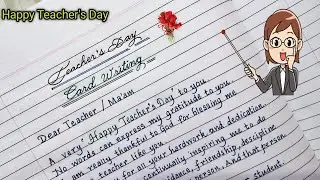 Happy Teacher's Day
Teacher's Day
Card Writing
Dear Teacher / Ma'am
A very 'Happy Teacher's Day' to you.
No words can express my gratitude to you.
am really thankful to God for blessing me
teacher like you.
for all your hardwork and dedication.
continually inspiring me to do
dance, friendship, discipline
person. And that person
student.